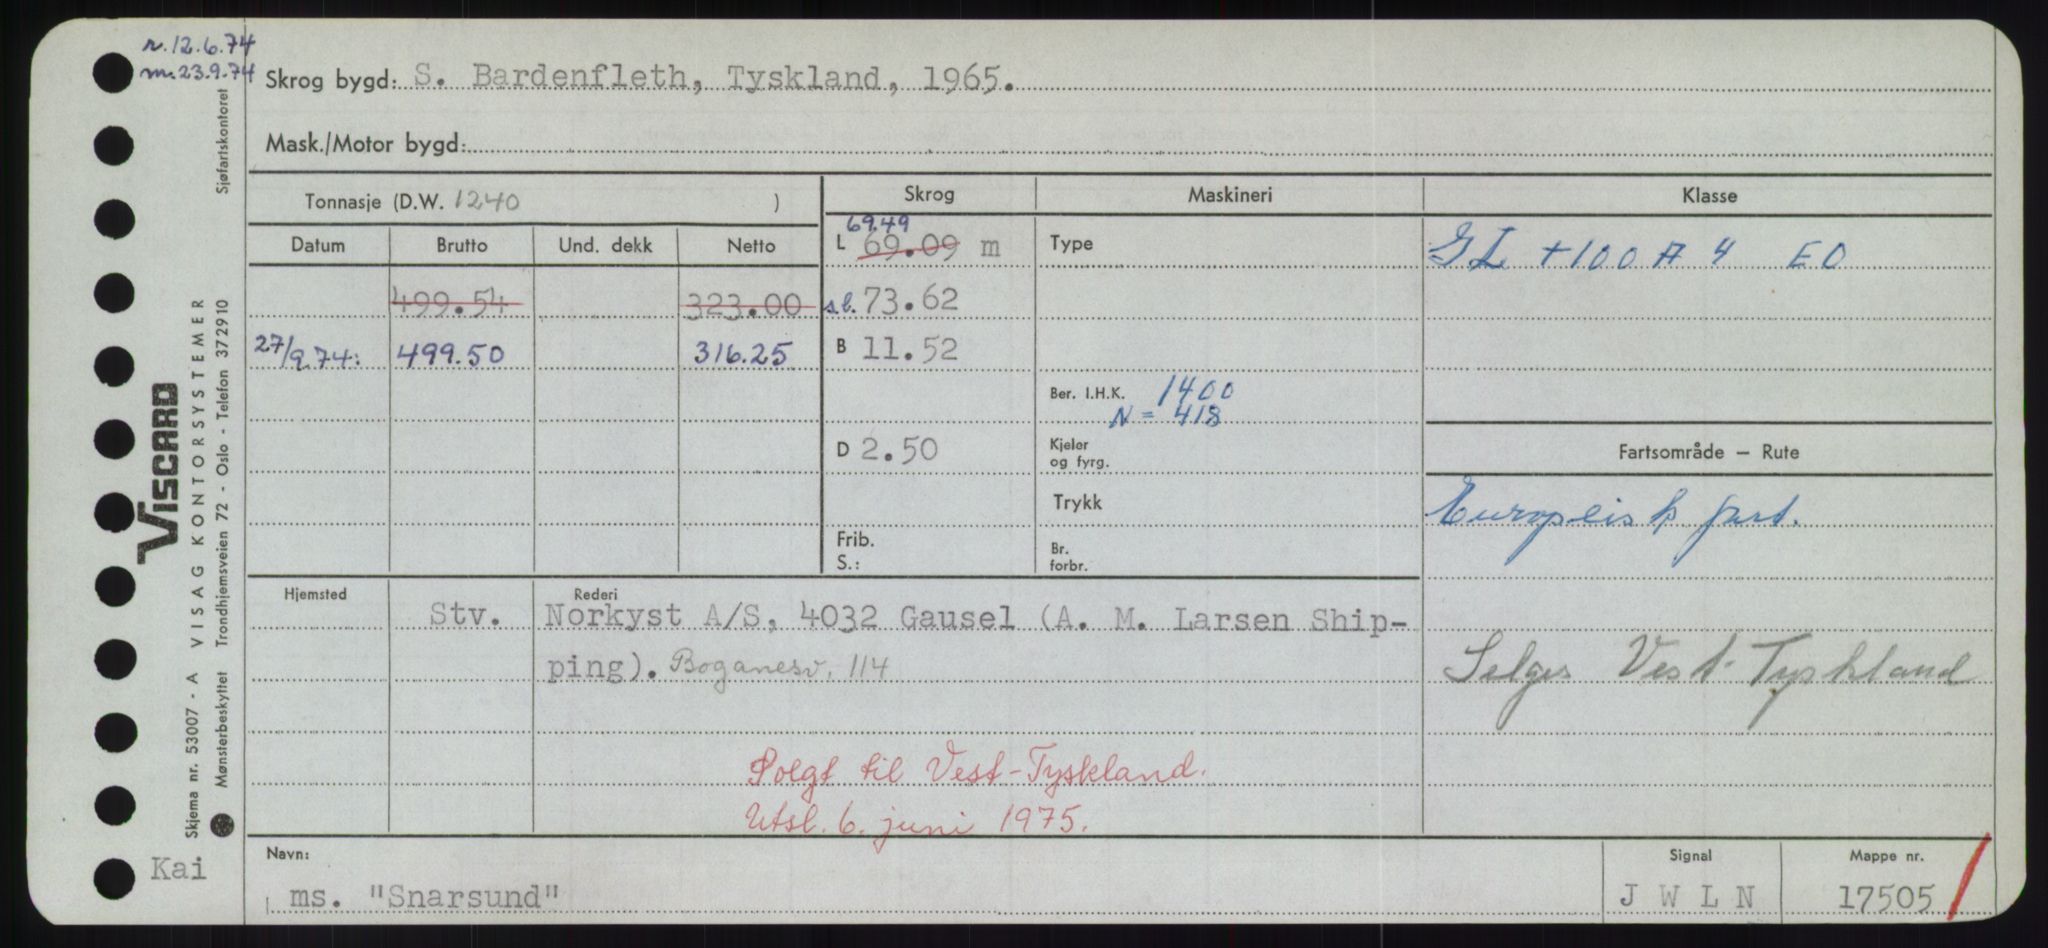 r. 12.6.74
m. 23.9.74
Skrog bygd: S. Bardenfleth, Tyskland, 1965.
Mask./Motor bygd:
Tonnasje (D.W. 1240 )
Skrog
Maskineri
Klasse
Datum Brutto Und. dekk Netto
69.49
L 69.09 m
Type
GL +100 A 4 EO
499.54 323.00
s.l. 73.62
27/9 74: 499.50 316.25
B 11.52
Ber. I.H.K. 1400
N = 418
D 2.50
Kjeler
og fyrg.
Fartsområde — Rute
Trykk
Europeisk fart.
Frib.
S.:
Br.
forbr.
Hjemsted
Rederi
Stv. Norkyst A/S, 4032 Gausel (A. M. Larsen Ship-
ping). Boganesv. 114
Selges Vest-Tyskland
Solgt til Vest-Tyskland.
Utsl. 6. juni 1975.
Kai
Navn:
ms. "Snarsund"
Signal
J W L N
Mappe nr.
17505
Viscard
Skjema nr. 53007 - A VISAG KONTORSYSTEMER
Mønsterbeskyttet Trondhjemsveien 72 - Oslo - Telefon 372910 Sjøfartskontoret